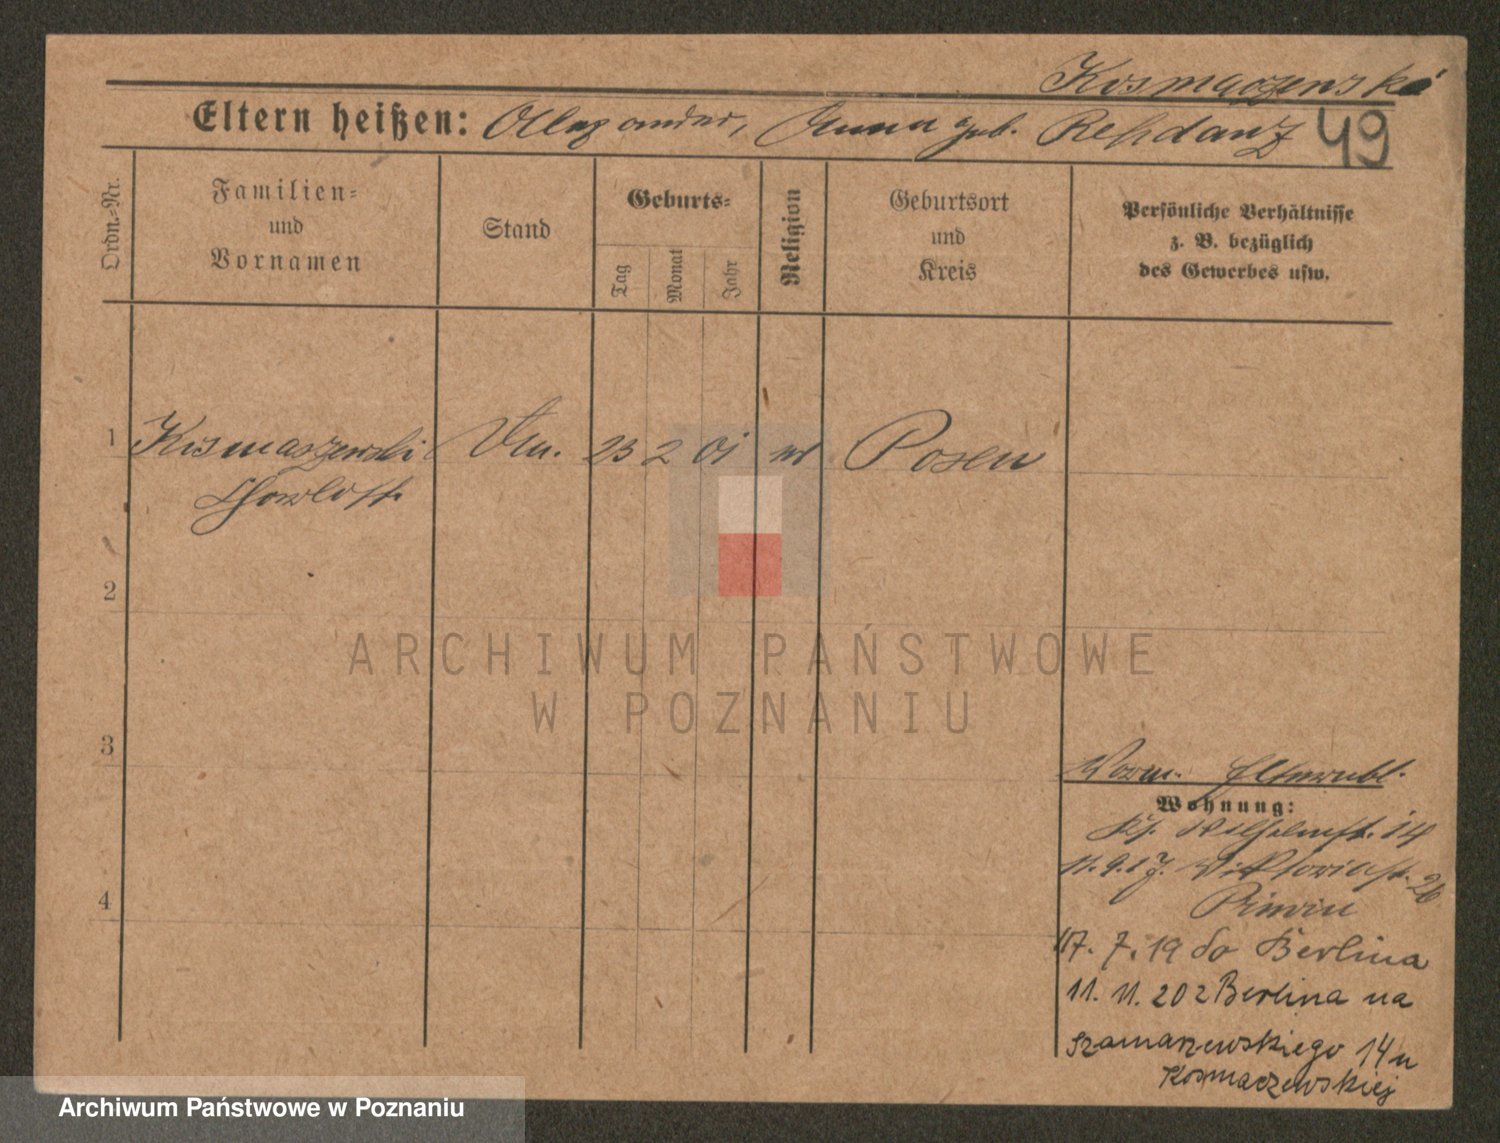 Kosmaczewska
Eltern heißen: Alexander, Anna geb. Rehdanz 49
Ordn.=Nr.
Familien=
und
Vornamen
Stand
Geburts=
Tag
Monat
Jahr
Religion
Geburtsort
und
Kreis
Persönliche Verhältnisse
z. B. bezüglich
des Gewerbes usw.
1 Kosmaszewski 23 2 01 Posen
2
3
4
Wohnung:
14
Viktoriast. 26
17. 7. 19 do Berlina
11. 11. 20 z Berlina na
Szamarzewskiego 14 u
Kosmaczewskiej
ARCHIWUM PAŃSTWOWE
W POZNANIU
Archiwum Państwowe w Poznaniu